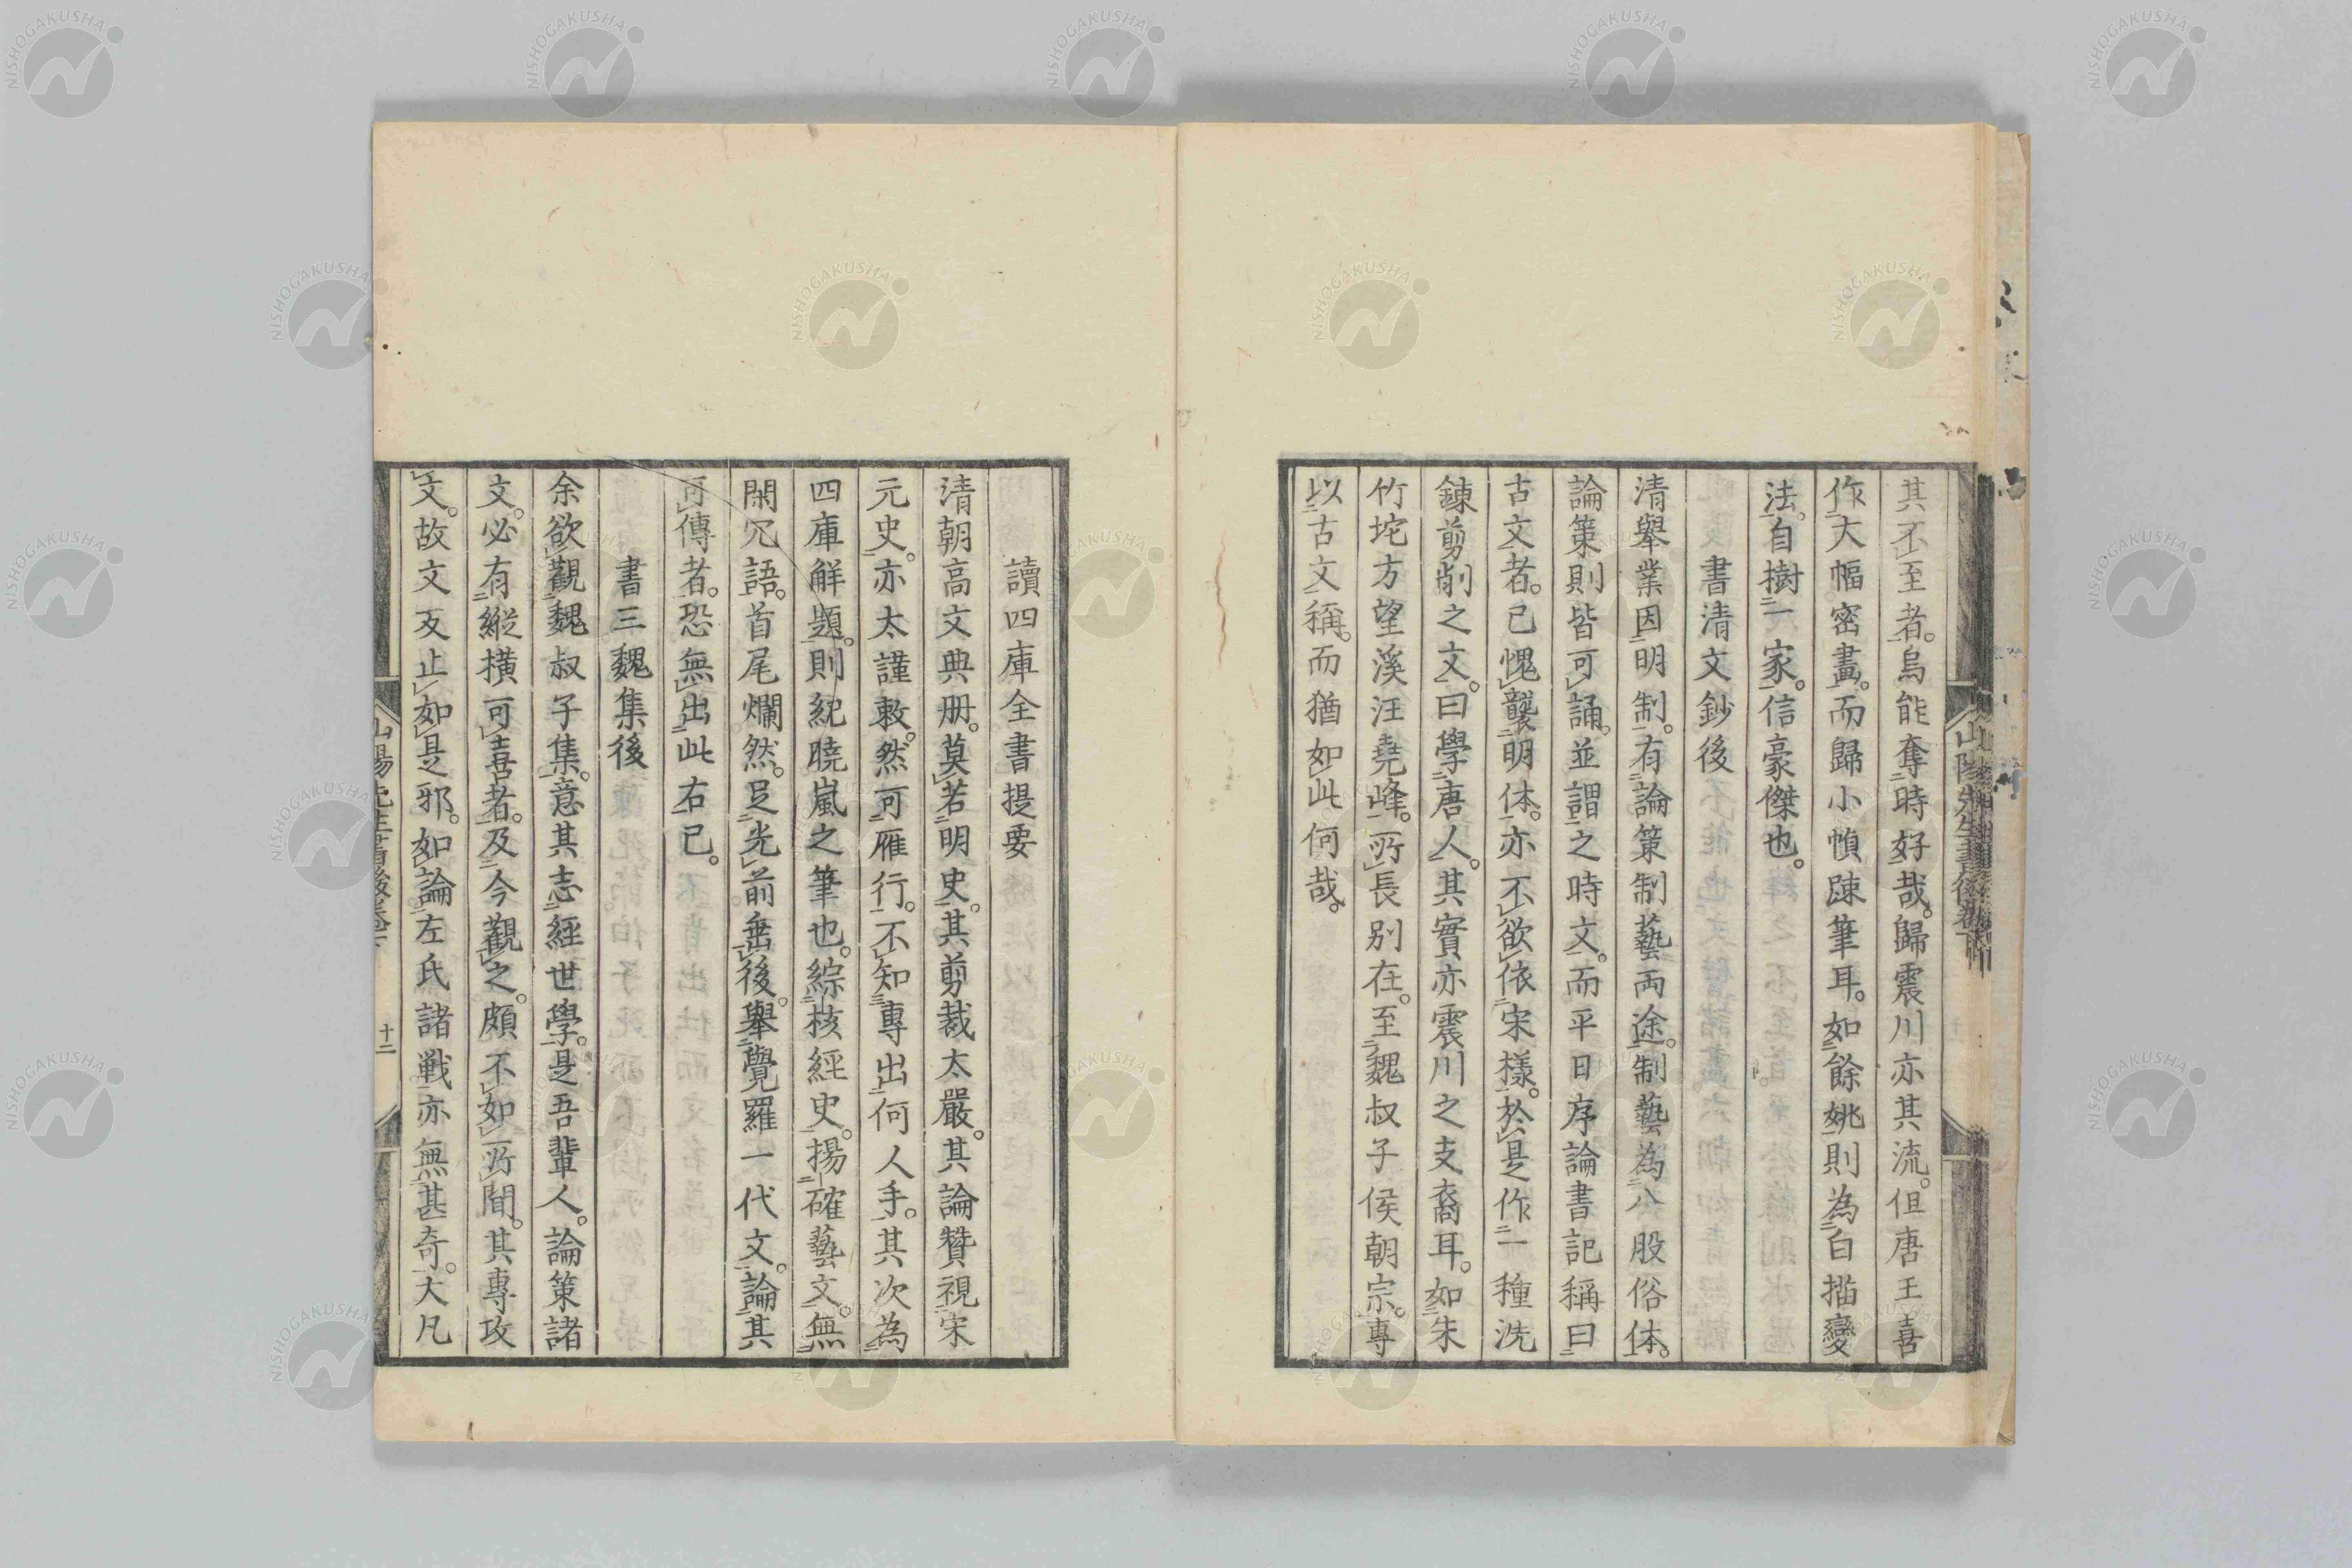 其不至者。烏能奪時好哉。歸震川亦其流。但唐王喜
作大幅密畫。而歸小幀踈筆耳。如餘姚則為白描變
法。自樹一家。信豪傑也。
書清文鈔後
清舉業因明制。有論策制藝両途。制藝為八股俗体。
論策則皆可誦。並謂之時文。而平日序論書記稱曰
古文者。已愧襲明体。亦不欲依宋樣。於是作一種洗
鍊剪削之文。曰學唐人。其實亦震川之支裔耳。如朱
竹垞方望溪汪堯峰。所長別在。至魏叔子侯朝宗。專
以古文稱。而猶如此何哉。
讀四庫全書提要
清朝高文典册。莫若明史。其剪裁太嚴。其論贊視宋
元史。亦太謹敕。然可雁行。不知專出何人手。其次為
四庫解題。則紀曉嵐之筆也。綜核經史。揚確藝文。無
閑冗語。首尾爛然。足光前垂後。擧覺羅一代文。論其
可傳者。恐無出此右已。
書三魏集後
余欲觀魏叔子集。意其志經世學。是吾輩人。論策諸
文。必有縱横可喜者。及今觀之。頗不如所聞。其專攻
文。故文反止如是邪。如論左氏諸戦亦無甚奇。大凡
山陽先生書後卷下
十二
NISHOGAKUSHA